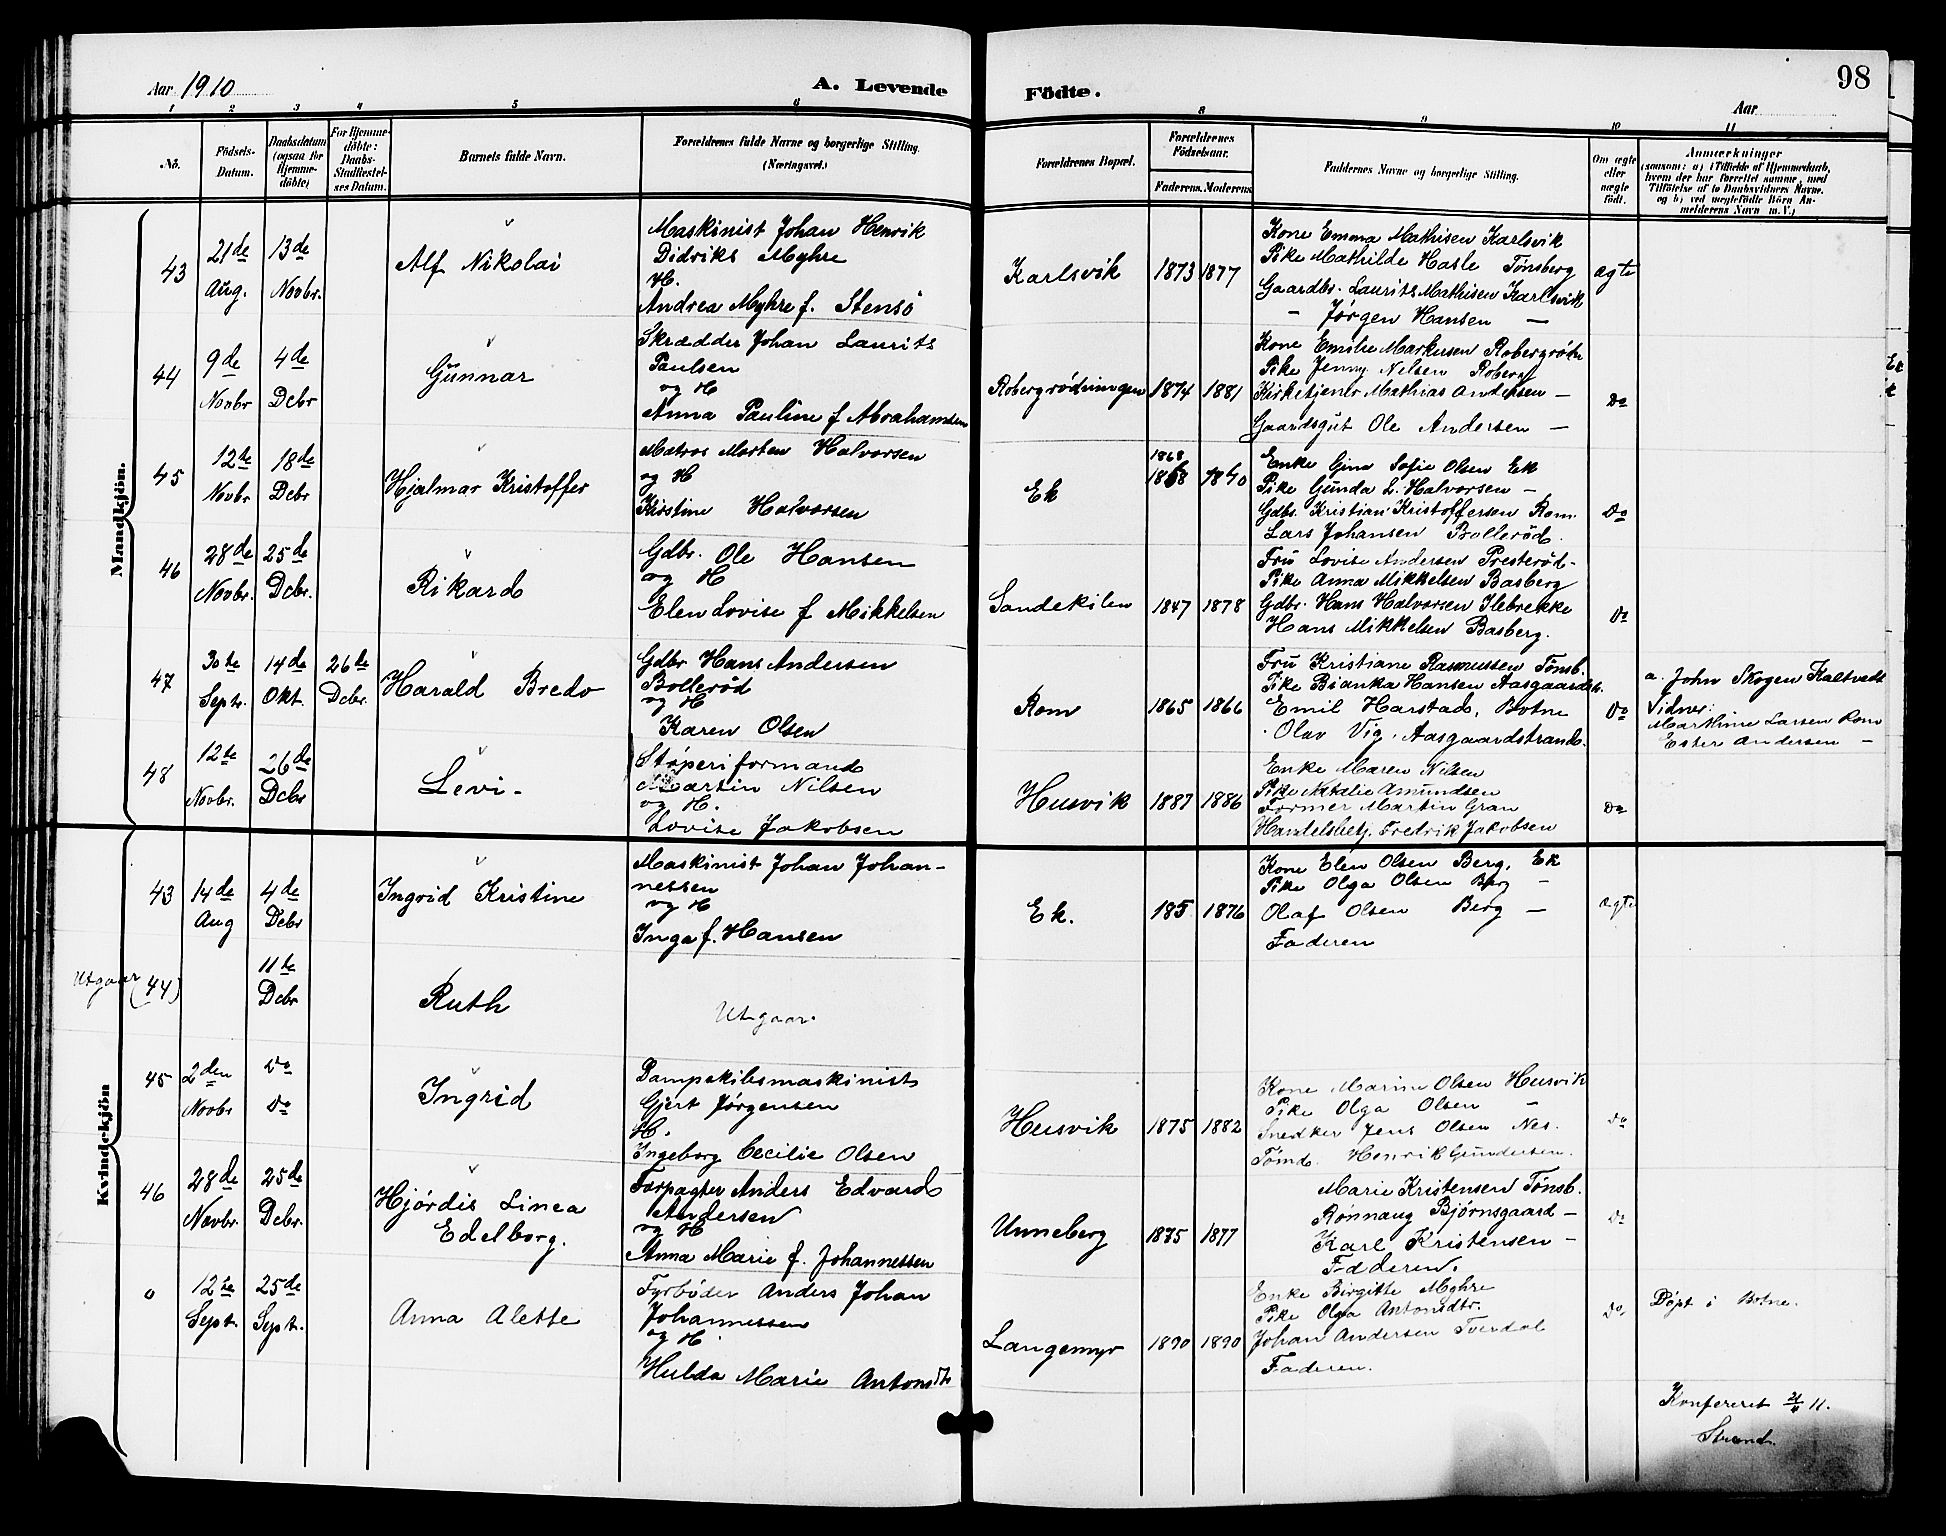 Aar 1910
A. Levende
Födte.
Aar
98
1 2 3 4 5 6 8 9 10 11
No.
Födsels-
Datum.
Daabsdatum
(ogsaa for
Hjemme-
döbte)
For Hjemme-
döbte:
Daabs-
Stadfæstel-
ses Datum.
Barnets fulde Navn.
Forældrenes fulde Navne og borgerlige Stilling.
(Næringsvei.)
Forældrenes Bopæl.
Forældrenes
Födselsaar.
Faderens. Moderens.
Faddernes Navne og borgerlige Stilling.
Om ægte
eller
uægte
født.
Anmærkninger
(saasom: a) i Tilfælde af Hjemmedaab,
hvem der har forrettet samme, med
Tilföielse af to Daabsvidners Navne,
og b) ved uegtefödte Börn An-
melderens Navn m. V.)
Mandkjön.
43
21de
Aug.
13de
Novbr.
Alf Nikolai
Maskinist Johan Henrik
Didriks Myhre
H.
Andrea Myhre f. Stensö
Karlsvik
1873 1877
Kone Emma Mathisen Karlsvik
Pike Mathilde Hasle Tönsberg
Gaardbr. Laurits Mathisen Karlsvik
— Jørgen Hansen —
ægte
44
9de
Novbr
4de
Dcbr
Gunnar
Skrædder Johan Laurits
Paulsen
og H
Anna Pauline f Abrahamsen
Robergrødningen
1874 1881
Kone Emilie Markussen Robergrødn
Pike Jenny Nelsen Roberg
Kirketjener Mathias Andersen —
Gaardsgut Ole Andersen —
Do
45
12te
Novbr
18de
Dcbr
Hjalmar Kristoffer
Matros Morten Halvorsen
og H
Kirstine Halvorsen
Ek
1868
1868 1870
Enke Gina Sofie Olsen Ek
Pike Gunda L. Halvorsen —
Gdbr. Kristian Kristoffersen Rom.
Lars Johansen Bollerød.
Do
46
28de
Novbr.
25de
Dcbr.
Rikard
Gdbr. Ole Hansen
og H
Elen Lovise f Mikkelsen
Sandekilen
1847 1878
Fru Lovise Andersen Presterød —
Pike Anna Mikkelsen Basberg
Gdbr. Hans Halvorsen Ilebrekke
Hans Mikkelsen Basberg.
Do
47
30te
Septr.
14de
Okt.
26de
Dcbr.
Harald Bredo
Gdbr Hans Andersen
Bollerød
og H
Karen Olsen
Rom
1865 1866
Fru Kristiane Rasmussen Tønsb.
Pike Bianka Hansen Aasgaardstr.
Emil Harstad, Botne
Olav Vig, Aasgaardstrand.
Do
a. John Skogen Kaltvedt
Vidner:
Marthine Larsen Rom
Ester Andersen —
48
12te
Novbr.
26de
Dcbr
Levi -
Støperiformand
Martin Nilsen
og H.
Lovise Jakobsen
Husvik
1887 1886
Enke Maren Nilsen
Pike Natalie Amundsen
Former Martin Gran
Handelsbetj. Fredrik Jakobsen
Do
Kvindekjön
43
14de
Aug
4de
Dcbr
Ingrid Kristine
Maskinist Johan Johan-
nessen
og H
Inga f. Hansen
Ek.
185 1876
Kone Elen Olsen Berg, Ek
Pike Olga Olsen Berg —
Olaf Olsen Berg —
Faderen
ægte
Utgaar (44)
11te
Dcbr
Ruth
Utgaar.
45
2den
Novbr
Do
Do
Ingrid
Dampskibsmaskinist
Gjert Jørgensen
H.
Ingeborg Cecilie Olsen
Husvik
1875 1882
Kone Marine Olsen Husvik
Pike Olga Olsen —
Snedker Jens Olsen Nes.
Tømd. Henrik Gundersen.
Do
46
28de
Novbr.
25de
Dcbr.
Hjørdis Linea
Edelborg.
Forpagter Anders Edvard
Andersen
og H
Anna Marie f. Johannessen
Unneberg
1875 1877
Marie Kristensen Tønsb.
Rønnaug Bjørnsgaard —
Karl Kristensen —
Fadderen.
Do
0
12te
Septr.
25de
Septr.
Anna Alette
Fyrbøder Anders Johan
Johannessen
og H.
Hulda Marie Antonsdtr
Langemyr
1890 1890
Enke Birgitte Myhre
Pike Olga Antonsdtr.
Johan Andersen Tverdal
Faderen.
Do.
Döpt i Botne.
Konfereret 21/4 11.
Strand.